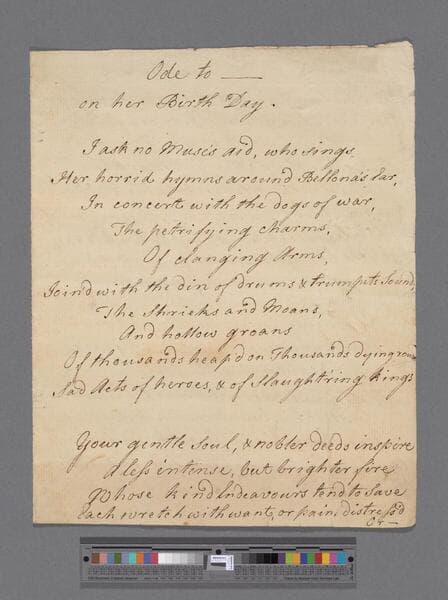 Ode to —
on her Birth Day.
I ask no Muse's aid, who sings
Her horrid hymns around Bellona's Car,
In concert with the dogs of war,
The petrifying charms,
Of clanging Arms,
Joind with the din of drums & trumpets sound,
The Shrieks and Moans,
And hollow groans
Of thousands heap'd on Thousands dying round
Sad Acts of heroes, & of Slaught'ring kings
Your gentle Soul, & nobler deeds inspire
A less intense, but brighter fire
Whose kind Endeavours tend to save
Each wretch with want, or pain, distress'd